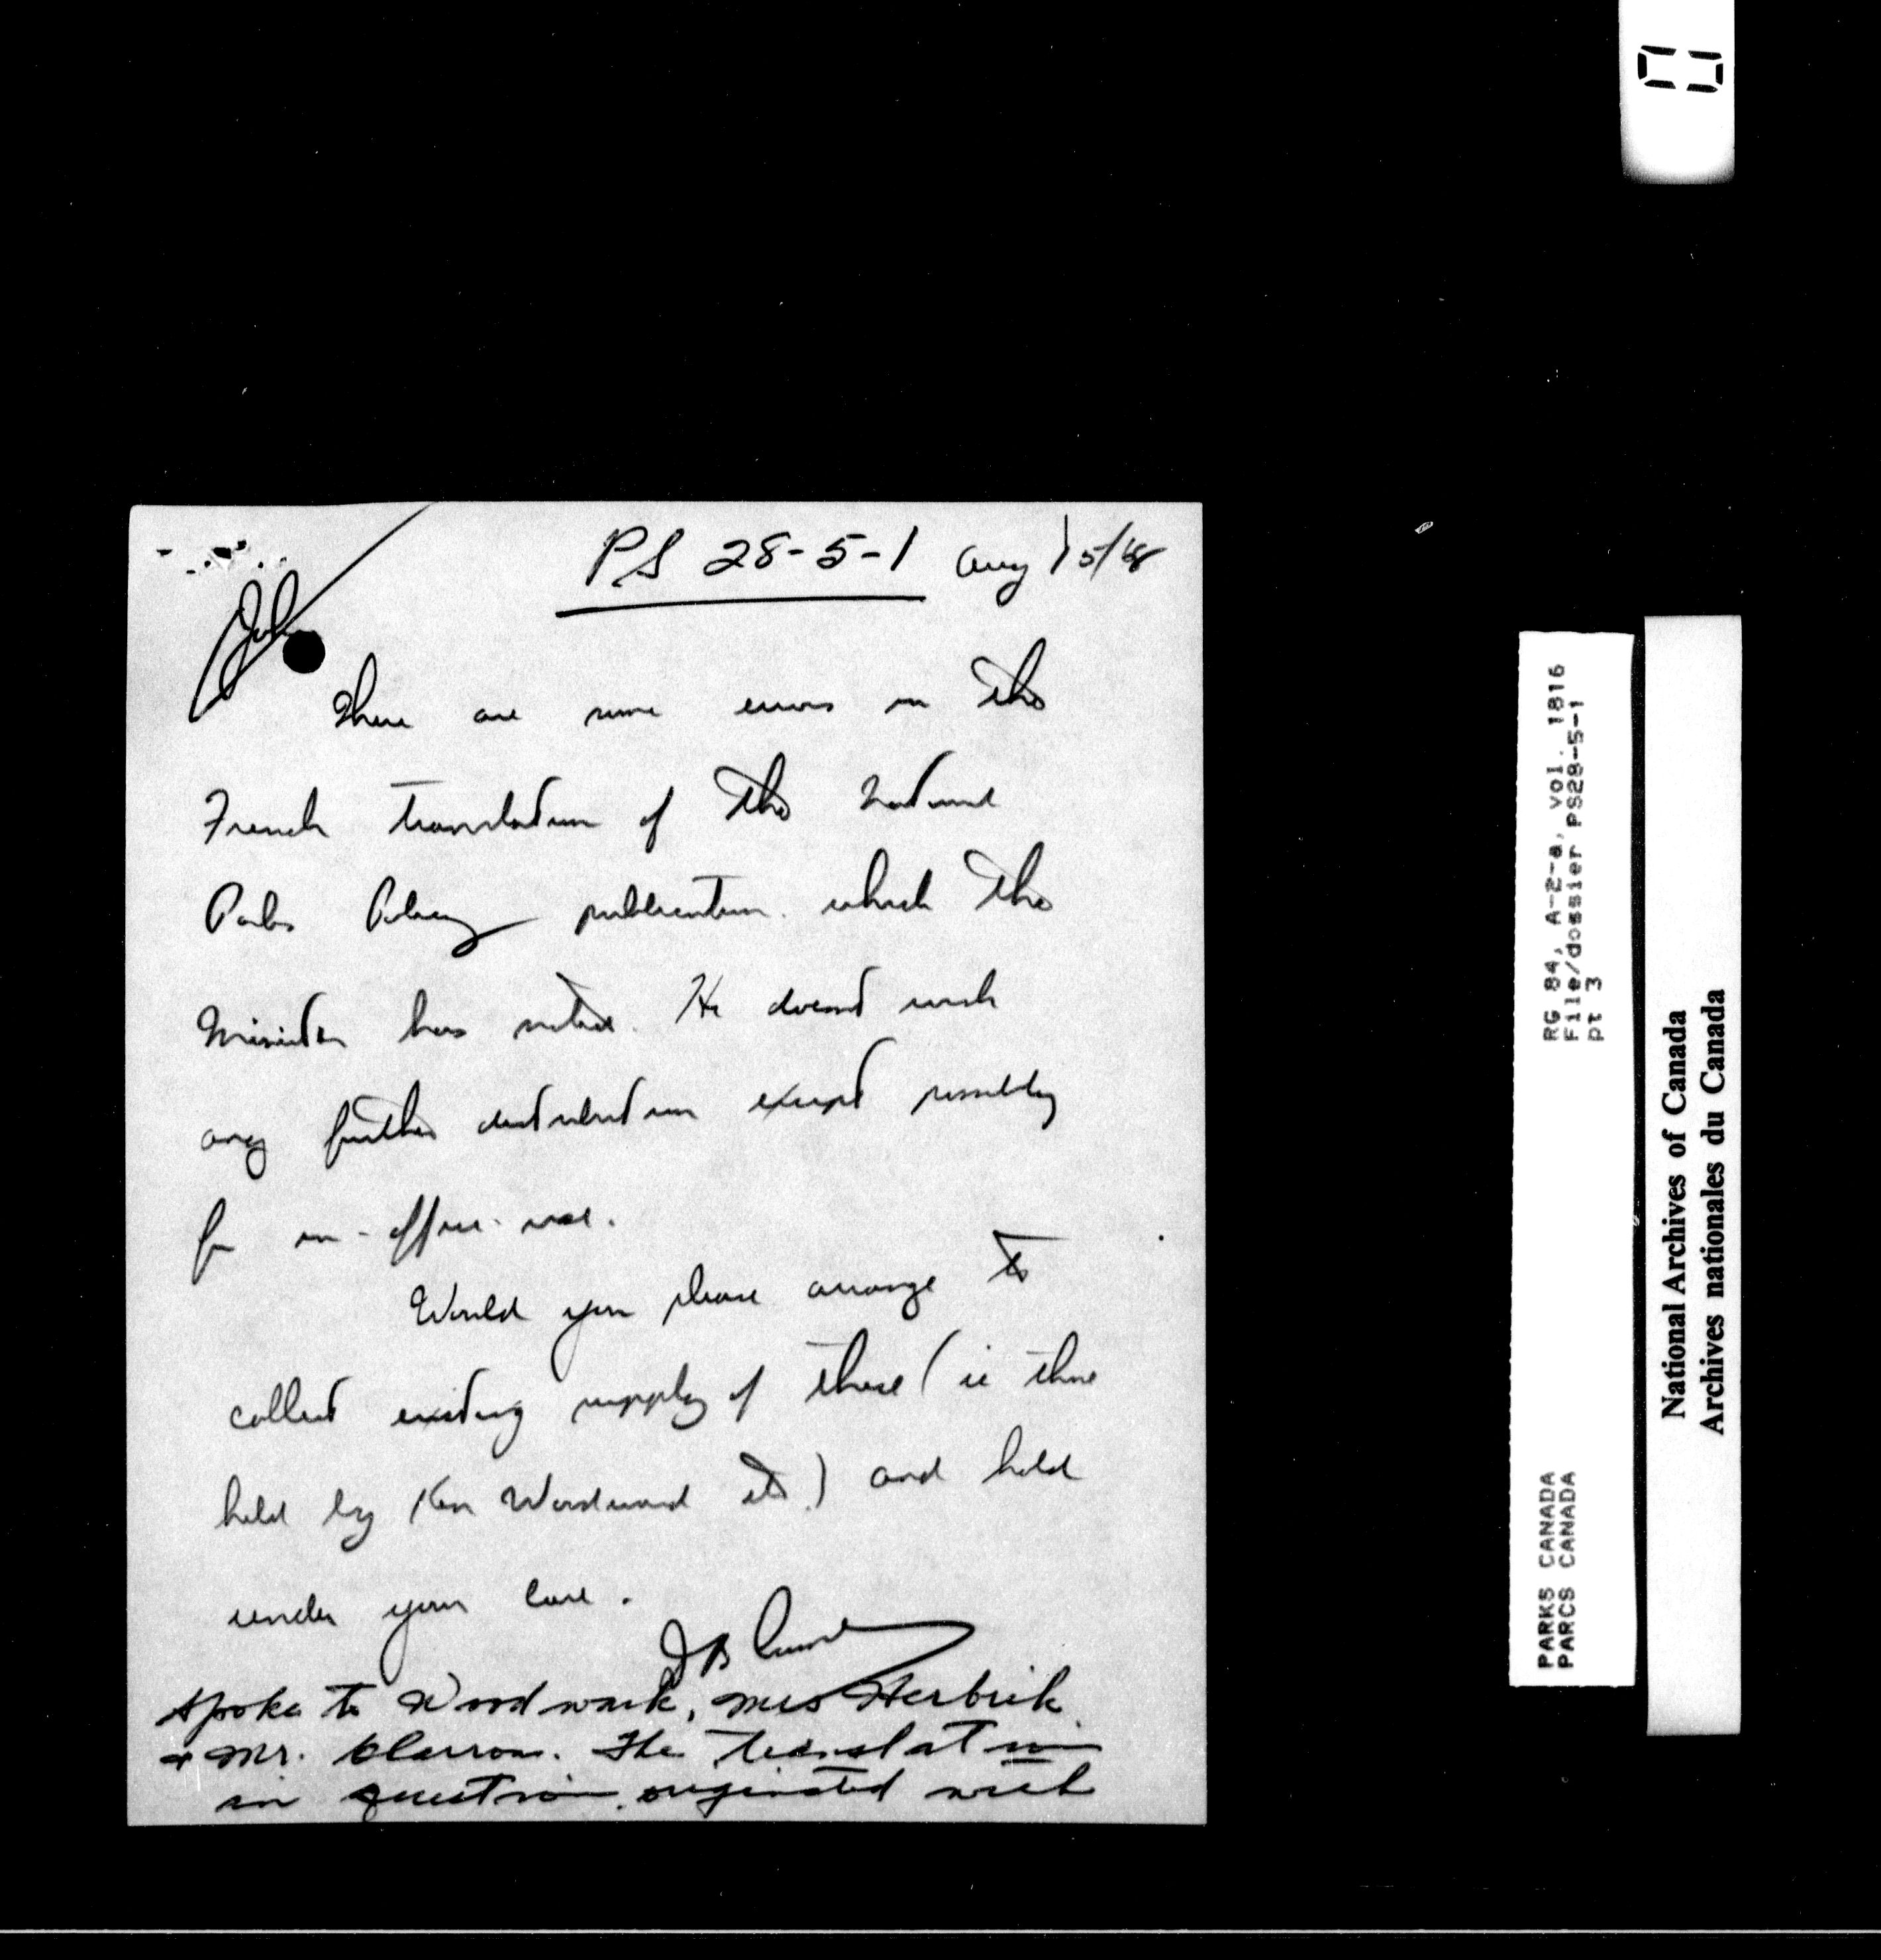 PS 28-5-1 Aug 15/
John
There are some errors in the
French translation of the National
Parks Policy publication which the
Minister has noted. He doesn't wish
any further distribution except possibly
for in-office use.
Would you please arrange to
collect existing supply of these (ie those
held by Ken Woodward etc.) and hold
under your care.
J B
Spoke to Woodward, Mrs
& Mr. The translation
in question originated with
RG 84, A-2-a, vol. 1816
File/dossier PS28-5-1
pt 3
PARKS CANADA
PARCS CANADA
National Archives of Canada
Archives nationales du Canada